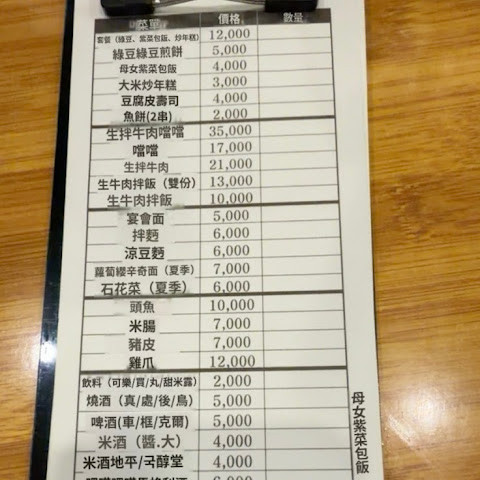 菜單 價格 數量
套餐（綠豆、紫菜包飯、炒年糕） 12,000
綠豆綠豆煎餅 5,000
母女紫菜包飯 4,000
大米炒年糕 3,000
豆腐皮壽司 4,000
魚餅(2串) 2,000
生拌牛肉噹噹 35,000
噹噹 17,000
生拌牛肉 21,000
生牛肉拌飯（雙份） 13,000
生牛肉拌飯 10,000
宴會面 5,000
拌麪 6,000
涼豆麪 6,000
蘿蔔纓辛奇面（夏季） 7,000
石花菜（夏季） 6,000
頭魚 10,000
米腸 7,000
豬皮 7,000
雞爪 12,000
飲料（可樂/買/丸/甜米露） 2,000
燒酒（真/處/後/鳥） 5,000
啤酒(車/框/克爾) 5,000
米酒（醬.大） 4,000
米酒地平/국醇堂 4,000
母女紫菜包飯